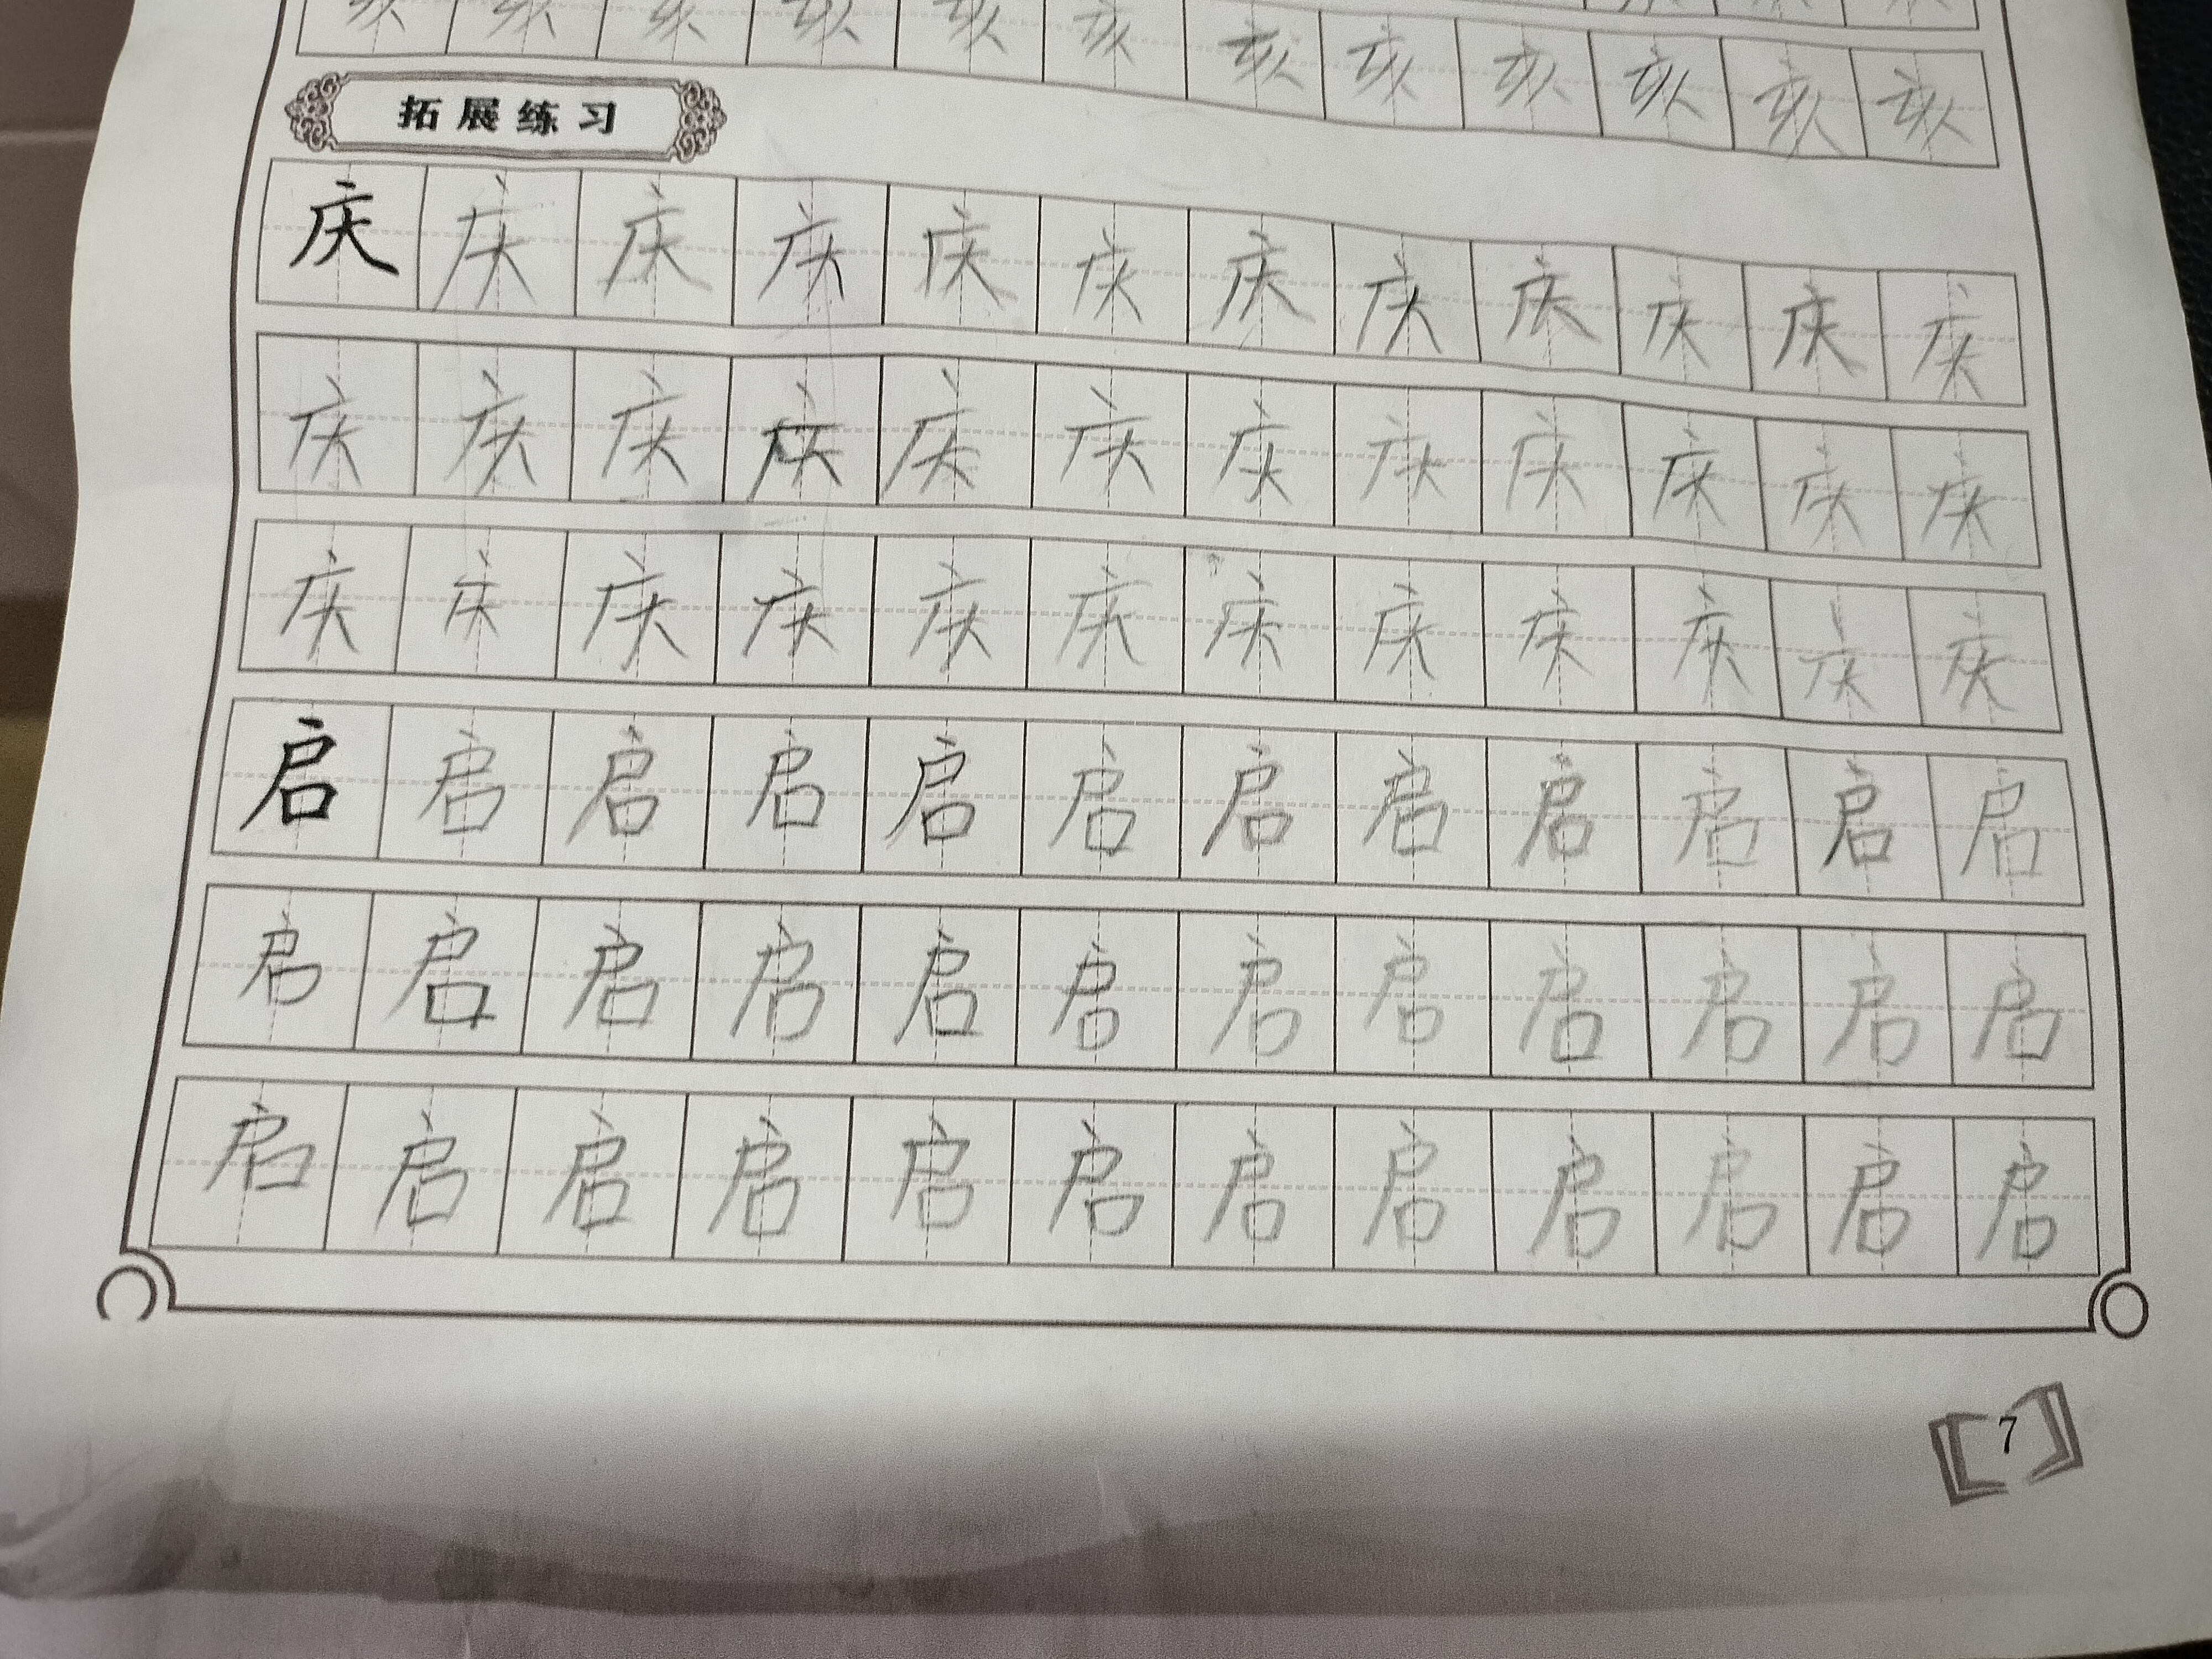 亥亥亥亥亥亥亥亥亥亥亥亥
拓展练习
庆庆庆庆庆庆庆庆庆庆庆庆
庆庆庆庆庆庆庆庆庆庆庆庆
庆庆庆庆庆庆庆庆庆庆庆庆
启启启启启启启启启启启启
启启启启启启启启启启启启
启启启启启启启启启启启启
7